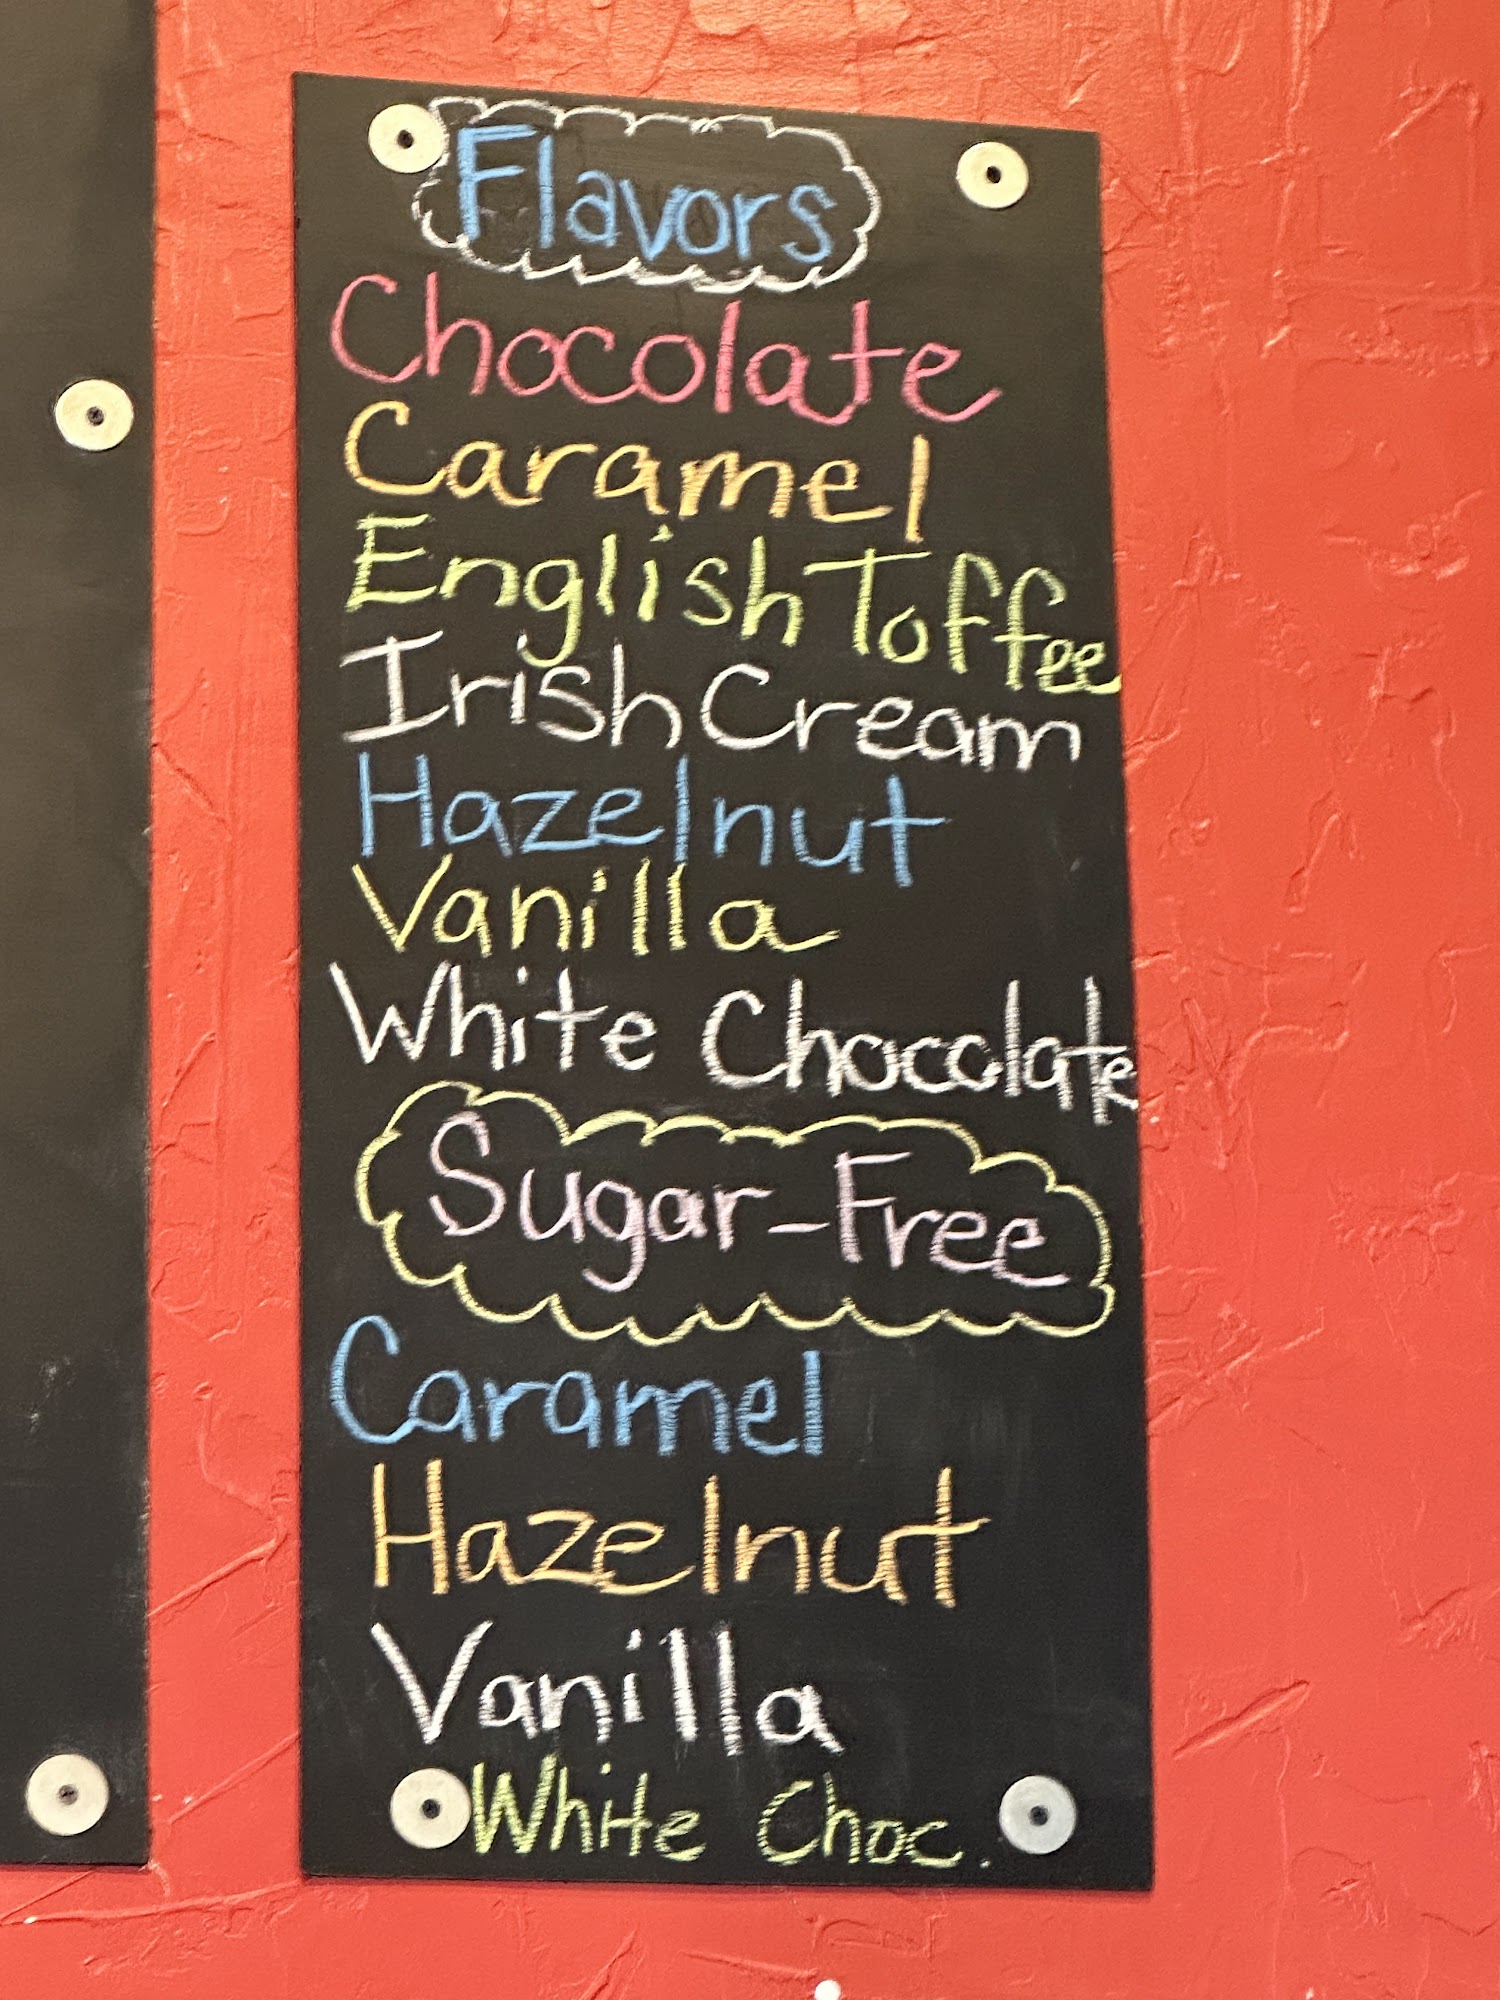 Flavors
Chocolate
Caramel
English Toffee
Irish Cream
Hazelnut
Vanilla
White Chocolate
Sugar-Free
Caramel
Hazelnut
Vanilla
White Choc.